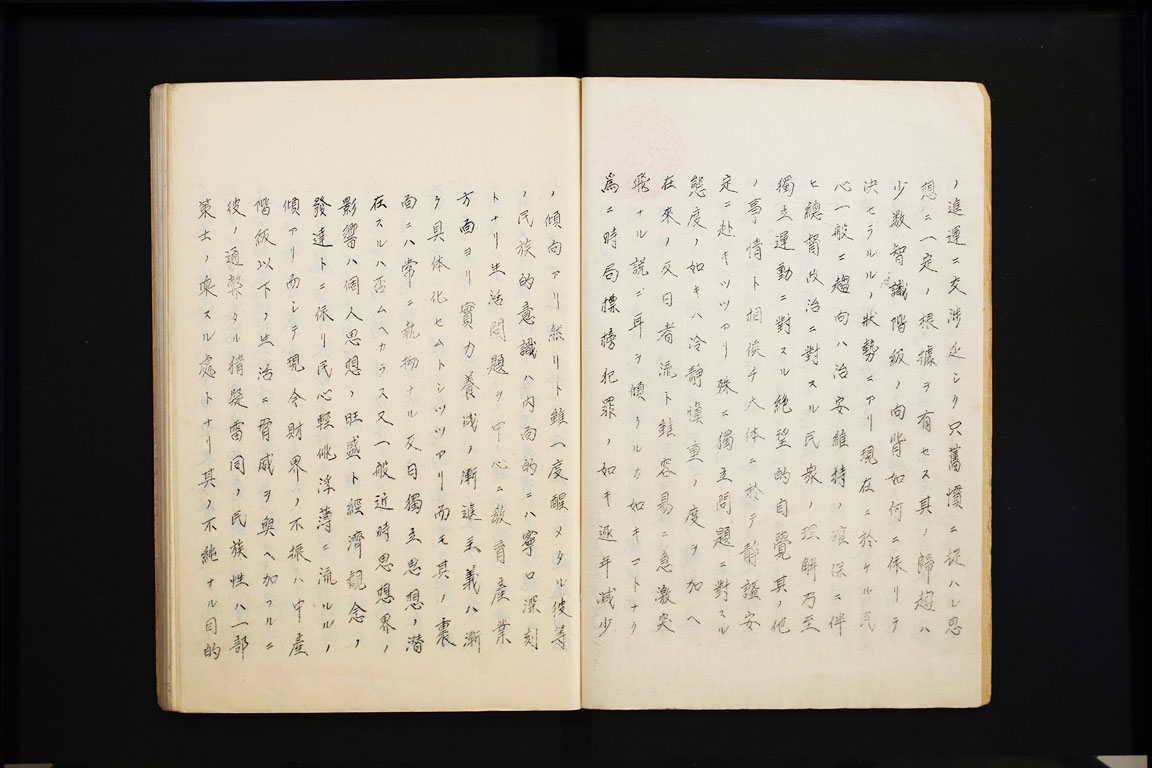 ノ進運ニ交渉乏シク只舊慣ニ捉ハレ思
想ニ一定ノ根據ヲ有セス其ノ歸趨ハ
少数智識階級ノ向背如何ニ依リテ
決セラルルノ狀勢ニアリ現在ニ於ケル民
心一般ニ趨向ハ治安維持ノ確保ニ伴
ヒ總督政治ニ對スル民衆ノ理解乃至
獨立運動ニ對スル絶望的自覺其ノ他
ノ事情ト相俟チ大体ニ於テ靜謐安
定ニ赴キツツアリ殊ニ獨立問題ニ對スル
態度ノ如キハ冷靜愼重ノ度ヲ加ヘ
在來ノ反日者流ト雖容易ニ急激突
飛ナル説ニ耳ヲ傾クルカ如キコトナク
爲ニ時局標榜犯罪ノ如キ逐年減少
ノ傾向アリ然リト雖一度醒メタル彼等
ノ民族的意識ハ内面的ニハ寧ロ深刻
トナリ生活問題ヲ中心ニ敎育産業
方面ヨリ實力養成ノ漸進主義ハ漸
ク具体化セムトシツツアリ而モ其ノ裏
面ニハ常ニ執拗ナル反目獨立思想ノ潜
在スルハ否ムヘカラス又一般近時思想界ノ
影響ハ個人思想ノ旺盛ト經濟觀念ノ
發達トニ依リ民心輕佻浮薄ニ流ルルノ
傾アリ而シテ現今財界ノ不振ハ中産
階級以下ノ生活ニ脅威ヲ與ヘ加フルニ
彼ノ通弊タル猜疑雷同ノ民族性ハ一部
策士ノ乘スル處トナリ其ノ不純ナル目的